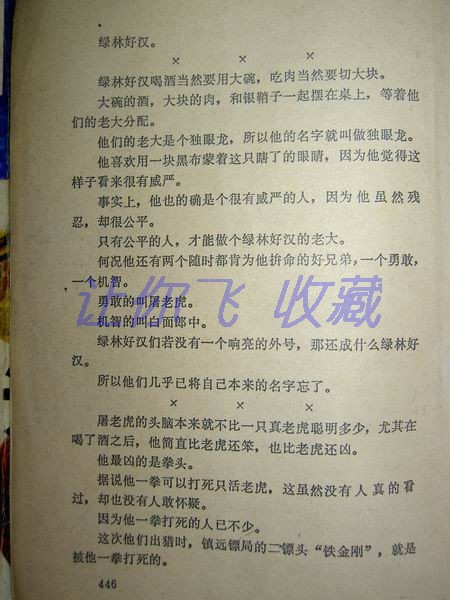 绿林好汉。
× × ×
绿林好汉喝酒当然要用大碗，吃肉当然要切大块。
大碗的酒，大块的肉，和银鞘子一起摆在桌上，等着他
们的老大分配。
他们的老大是个独眼龙，所以他的名字就叫做独眼龙。
他喜欢用一块黑布蒙着这只瞎了的眼睛，因为他觉得这
样子看来很有威严。
事实上，他也的确是个很有威严的人，因为他虽然残
忍，却很公平。
只有公平的人，才能做个绿林好汉的老大。
何况他还有两个随时都肯为他拚命的好兄弟，一个勇敢，
一个机智。
勇敢的叫屠老虎。
机智的叫白面郎中。
让你飞 收藏
绿林好汉们若没有一个响亮的外号，那还成什么绿林好
汉。
所以他们几乎已将自己本来的名字忘了。
× × ×
屠老虎的头脑本来就不比一只真老虎聪明多少，尤其在
喝了酒之后，他简直比老虎还笨，也比老虎还凶。
他最凶的是拳头。
据说他一拳可以打死只活老虎，这虽然没有人真的看
过，却也没有人敢怀疑。
因为他一拳打死的人已不少。
这次他们出猎时，镇远镖局的二镖头“铁金刚”，就是
被他一拳打死的。
446